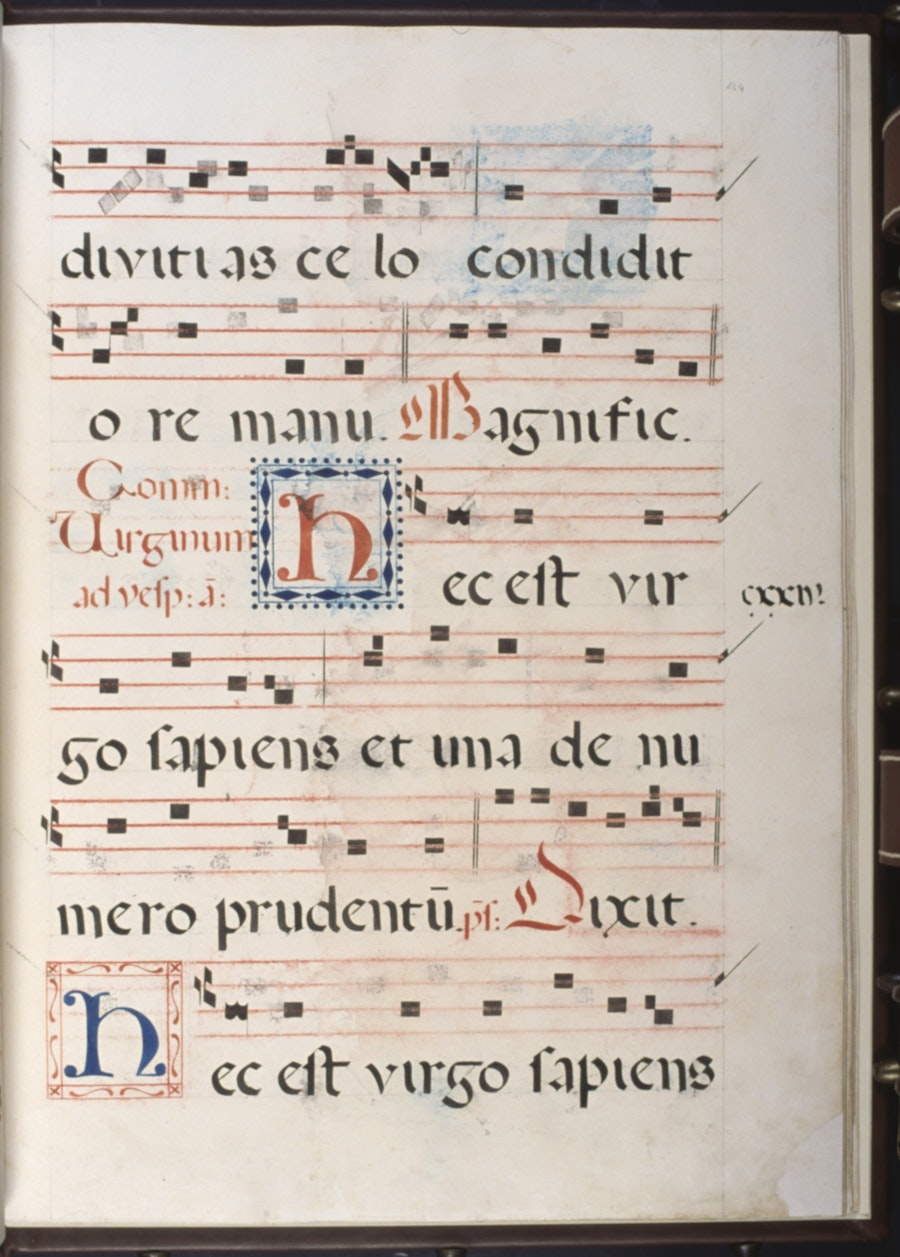 divitias ce lo condidit
o re manu. Magnific.
Comm:
Uirginum
ad vesp: ā:
hec est vir
go sapiens et una de nu
mero prudentū. ps: Dixit.
hec est virgo sapiens